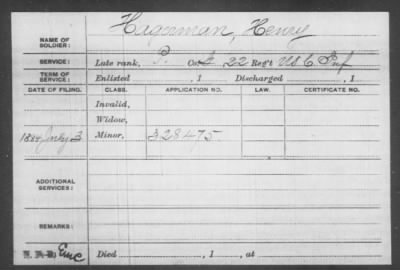 NAME OF SOLDIER: Hagerman, Henry
SERVICE: Late rank, P. Co. 22 Regt U S C Inf
TERM OF SERVICE: Enlisted , 1 Discharged , 1
DATE OF FILING. CLASS. APPLICATION NO. LAW. CERTIFICATE NO.
Invalid,
Widow,
1884 July 3 Minor, 328475.
ADDITIONAL SERVICES:
REMARKS:
Died , 1 , at